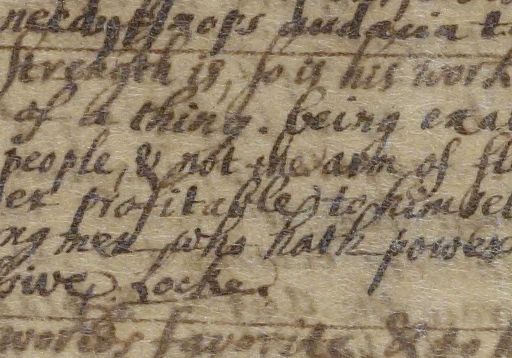 strength is, so is his work
of a thing. being exal
people, & not the arm of fl
er profitable to himsel
ng men who hath power
give. Locke.
words favorite, & to